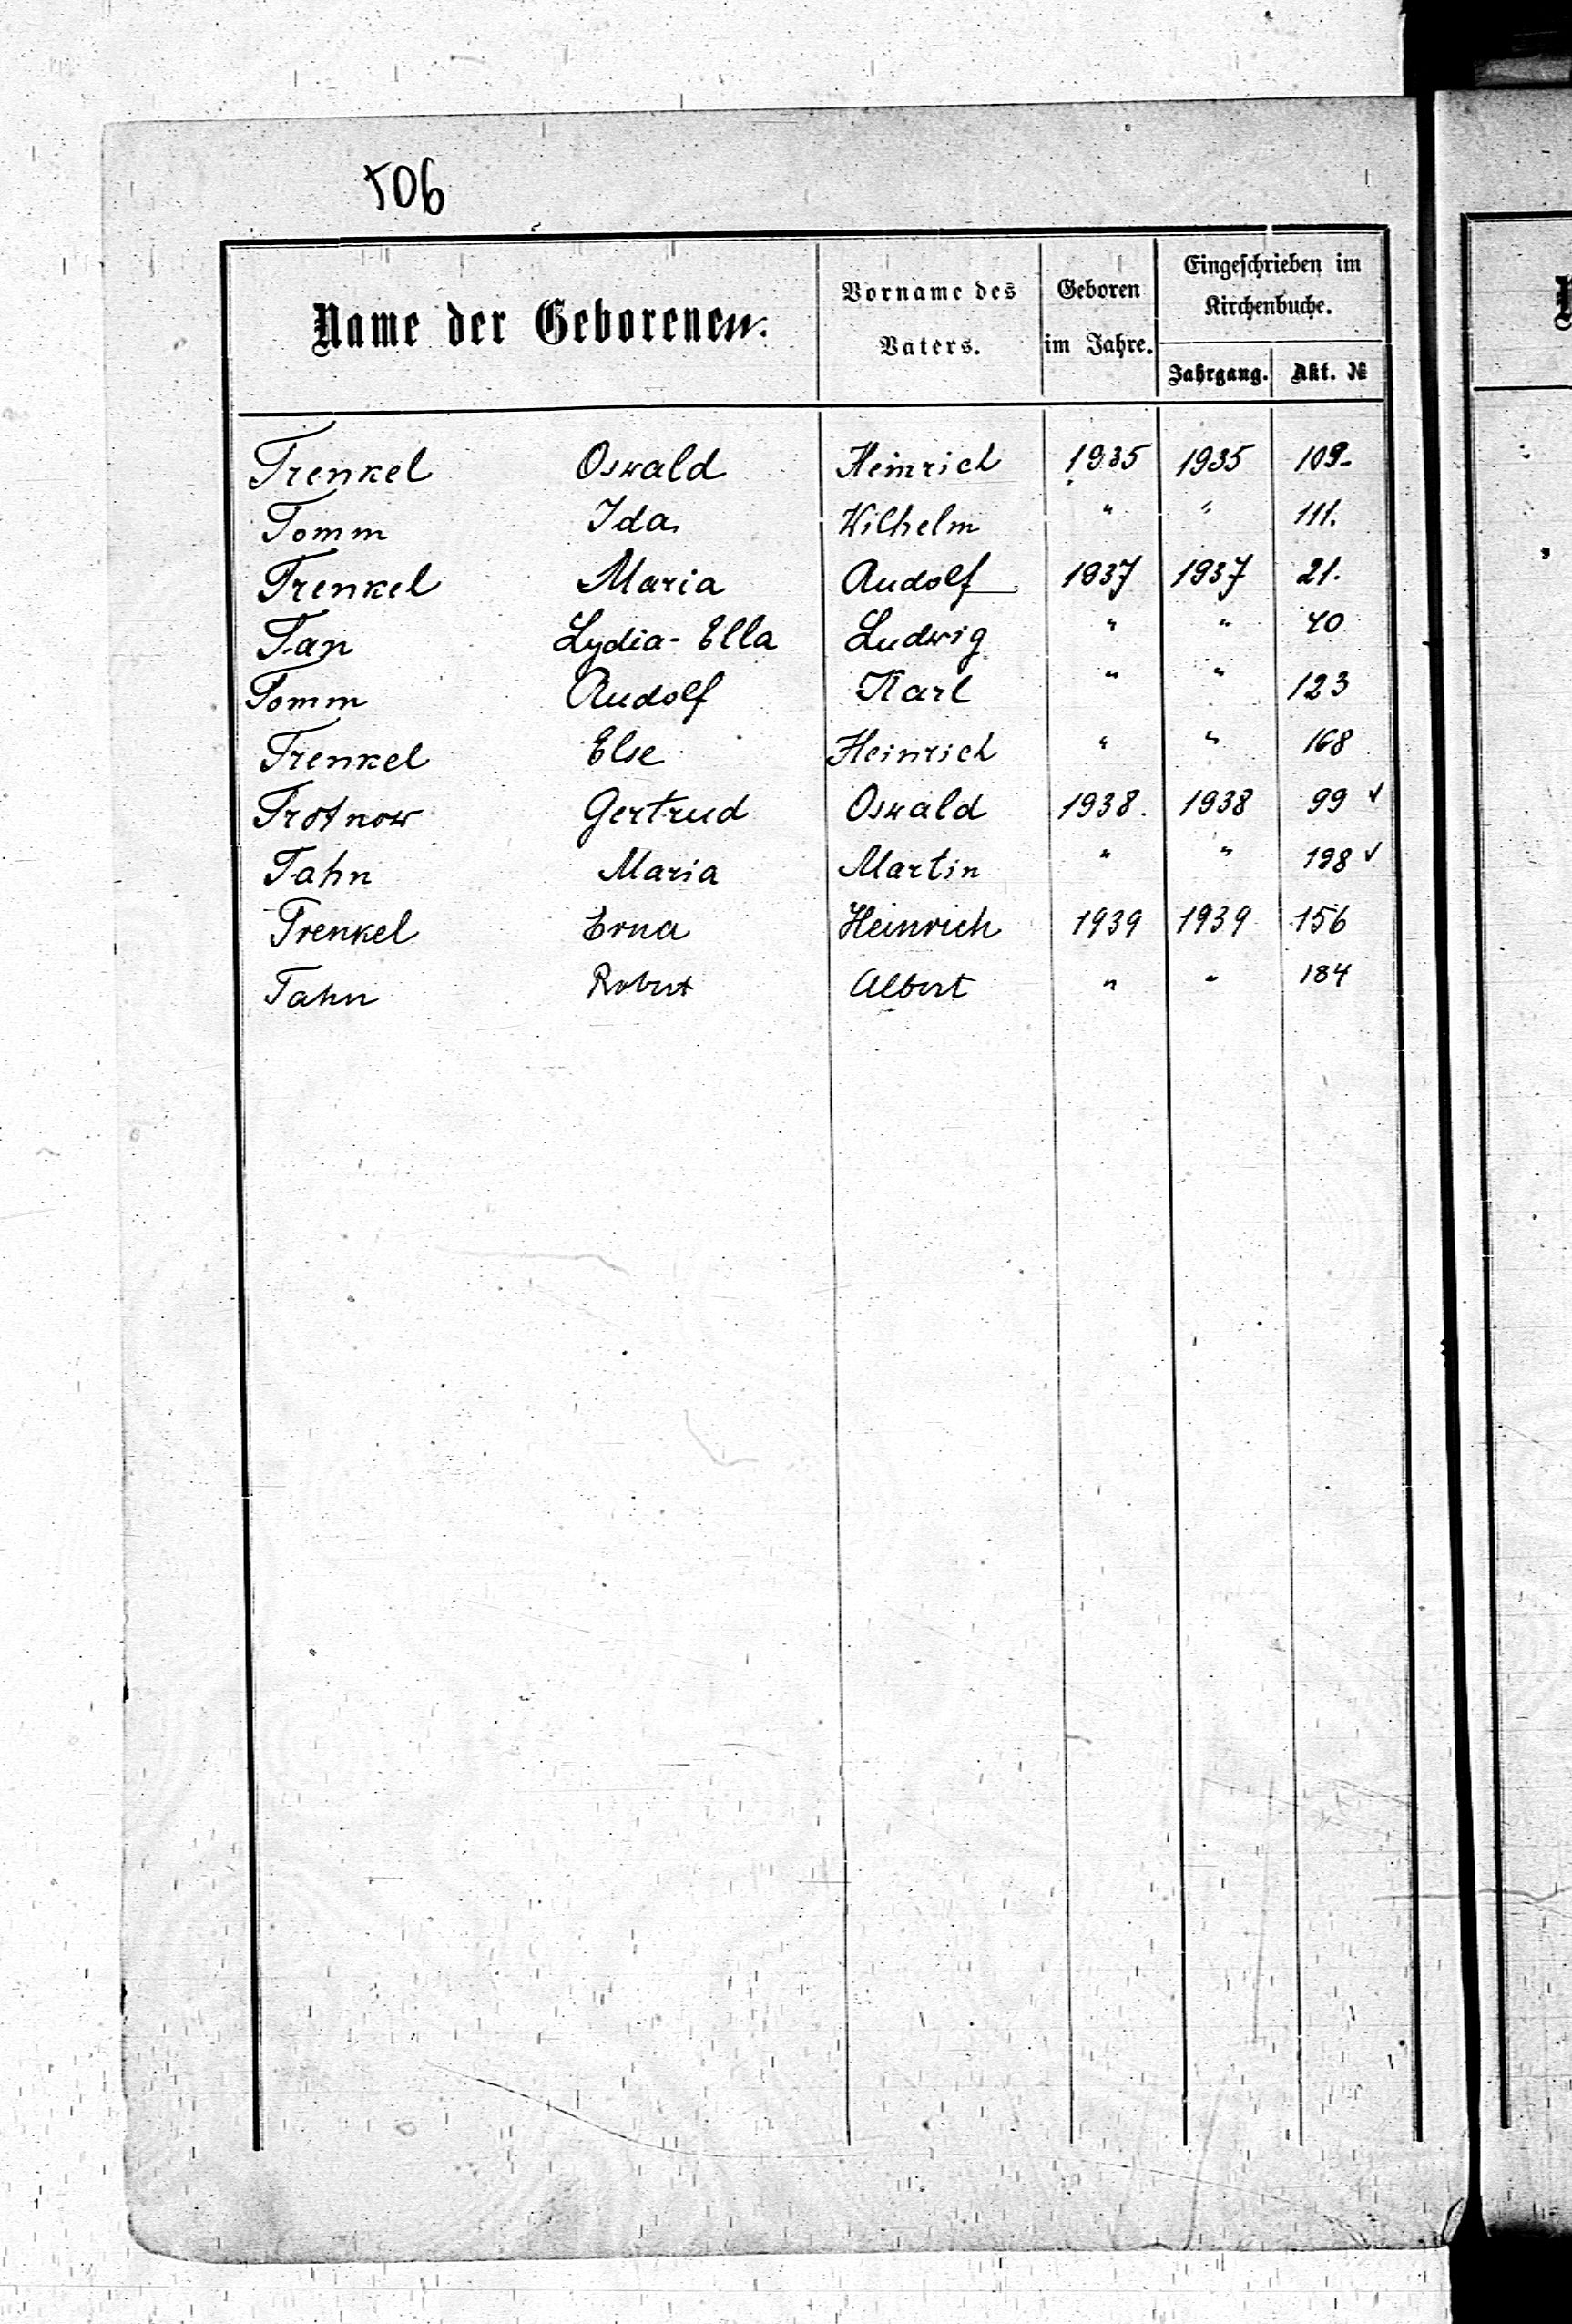 506
Name der Geborenen.
Vorname des Vaters.
Geboren im Jahre.
Eingeschrieben im Kirchenbuche.
Jahrgang. Akt. №
Trenkel Oswald Heinrich 1935 1935 109.
Tomm Ida Wilhelm " " 111.
Trenkel Maria Rudolf 1937 1937 21.
Tan Lydia-Ella Ludwig " " 40
Tomm Rudolf Karl " " 123
Trenkel Else Heinrich " " 168
Trotnow Gertrud Oswald 1938. 1938 99 ✓
Tahn Maria Martin " " 198 ✓
Trenkel Erna Heinrich 1939 1939 156
Tahn Robert Albert " " 184